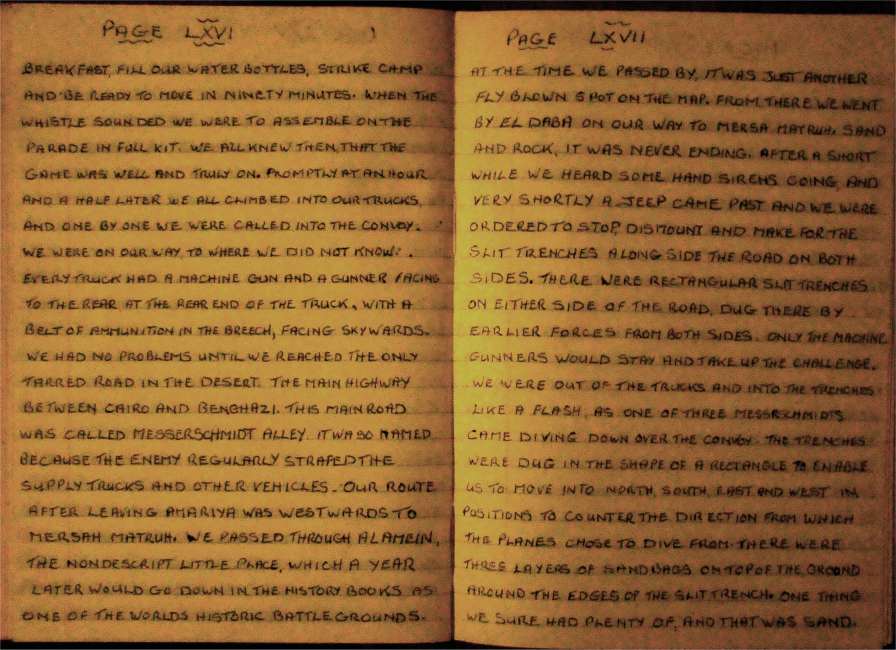 PAGE LXVI
BREAKFAST, FILL OUR WATER BOTTLES, STRIKE CAMP
AND BE READY TO MOVE IN NINETY MINUTES. WHEN THE
WHISTLE SOUNDED WE WERE TO ASSEMBLE ON THE
PARADE IN FULL KIT. WE ALL KNEW THEN, THAT THE
GAME WAS WELL AND TRULY ON. PROMPTLY AT AN HOUR
AND A HALF LATER WE ALL CLIMBED INTO OUR TRUCKS,
AND ONE BY ONE WE WERE CALLED INTO THE CONVOY.
WE WERE ON OUR WAY, TO WHERE WE DID NOT KNOW.
EVERY TRUCK HAD A MACHINE GUN AND A GUNNER FACING
TO THE REAR AT THE REAR END OF THE TRUCK, WITH A
BELT OF AMMUNITION IN THE BREECH, FACING SKYWARDS.
WE HAD NO PROBLEMS UNTIL WE REACHED THE ONLY
TARRED ROAD IN THE DESERT. THE MAIN HIGHWAY
BETWEEN CAIRO AND BENGHAZI. THIS MAIN ROAD
WAS CALLED MESSERSCHMIDT ALLEY. IT WAS SO NAMED
BECAUSE THE ENEMY REGULARLY STRAFED THE
SUPPLY TRUCKS AND OTHER VEHICLES. OUR ROUTE
AFTER LEAVING AMARIYA WAS WESTWARDS TO
MERSAH MATRUH. WE PASSED THROUGH ALAMEIN,
THE NONDESCRIPT LITTLE PLACE, WHICH A YEAR
LATER WOULD GO DOWN IN THE HISTORY BOOKS AS
ONE OF THE WORLDS HISTORIC BATTLEGROUNDS.
PAGE LXVII
AT THE TIME WE PASSED BY, IT WAS JUST ANOTHER
FLY BLOWN SPOT ON THE MAP. FROM THERE WE WENT
BY EL DABA ON OUR WAY TO MERSA MATRUH. SAND
AND ROCK, IT WAS NEVER ENDING. AFTER A SHORT
WHILE WE HEARD SOME HAND SIRENS GOING, AND
VERY SHORTLY A JEEP CAME PAST AND WE WERE
ORDERED TO STOP, DISMOUNT AND MAKE FOR THE
SLIT TRENCHES ALONG SIDE THE ROAD ON BOTH
SIDES. THERE WERE RECTANGULAR SLIT TRENCHES
ON EITHER SIDE OF THE ROAD, DUG THERE BY
EARLIER FORCES FROM BOTH SIDES. ONLY THE MACHINE
GUNNERS WOULD STAY AND TAKE UP THE CHALLENGE.
WE WERE OUT OF THE TRUCKS AND INTO THE TRENCHES
LIKE A FLASH, AS ONE OF THREE MESSRSCHMIDTS
CAME DIVING DOWN OVER THE CONVOY. THE TRENCHES
WERE DUG IN THE SHAPE OF A RECTANGLE TO ENABLE
US TO MOVE INTO NORTH, SOUTH, EAST AND WEST IN
POSITIONS TO COUNTER THE DIRECTION FROM WHICH
THE PLANES CHOSE TO DIVE FROM. THERE WERE
THREE LAYERS OF SANDBAGS ON TOP OF THE GROUND
AROUND THE EDGES OF THE SLIT TRENCH. ONE THING
WE SURE HAD PLENTY OF, AND THAT WAS SAND.